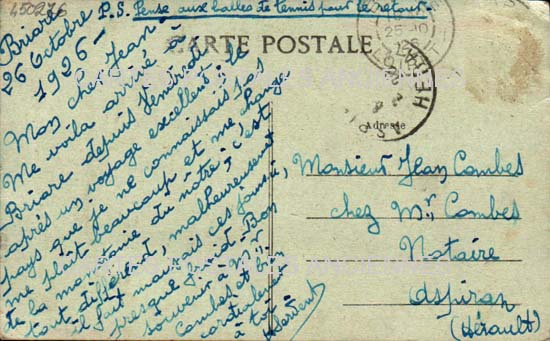 450276
P.S. Pense aux balles de tennis pour le retour.
CARTE POSTALE
Adresse
Briare
26 Octobre
1926 -
Mon cher Jean -
Me voila arrivé à
Briare depuis Vendredi
après un voyage excellent. Le
pays que je ne connaissais pas
me plaît beaucoup et me change
de la monotonie du nôtre ; c'est
tout différent, malheureusement
il fait mauvais ces jours-ci,
presque froid. Bon
souvenir à Mr.
Combes et bien
cordialement
à toi -
Monsieur Jean Combes
chez Mr Combes
Notaire
Aspiran
(Hérault)